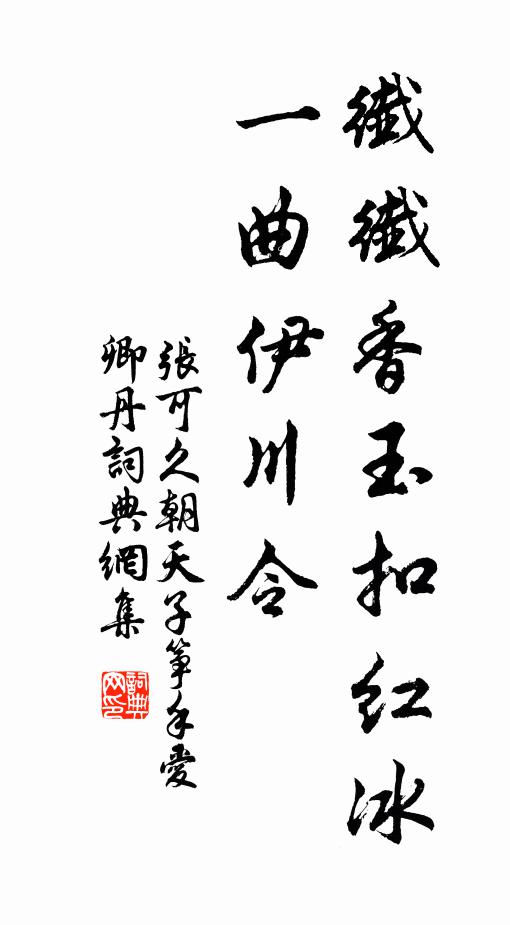 纖纖香玉扣红冰
一曲伊川令
張可久朝天子筝手愛
卿丹詞典網集
詞典网印